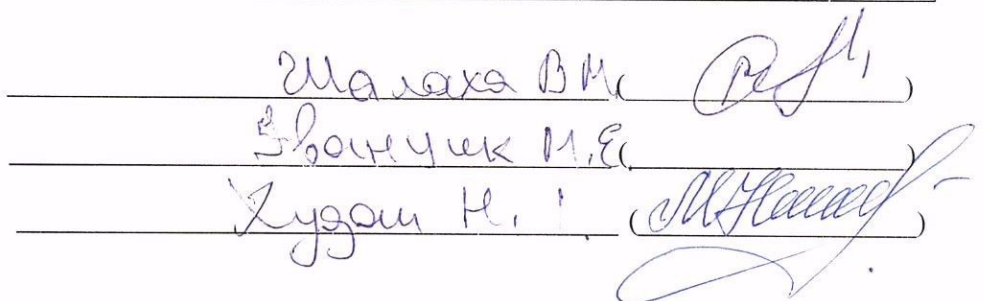 Шалаха В М. ( )
Званчук М.Е( )
Худаш Н. ( )